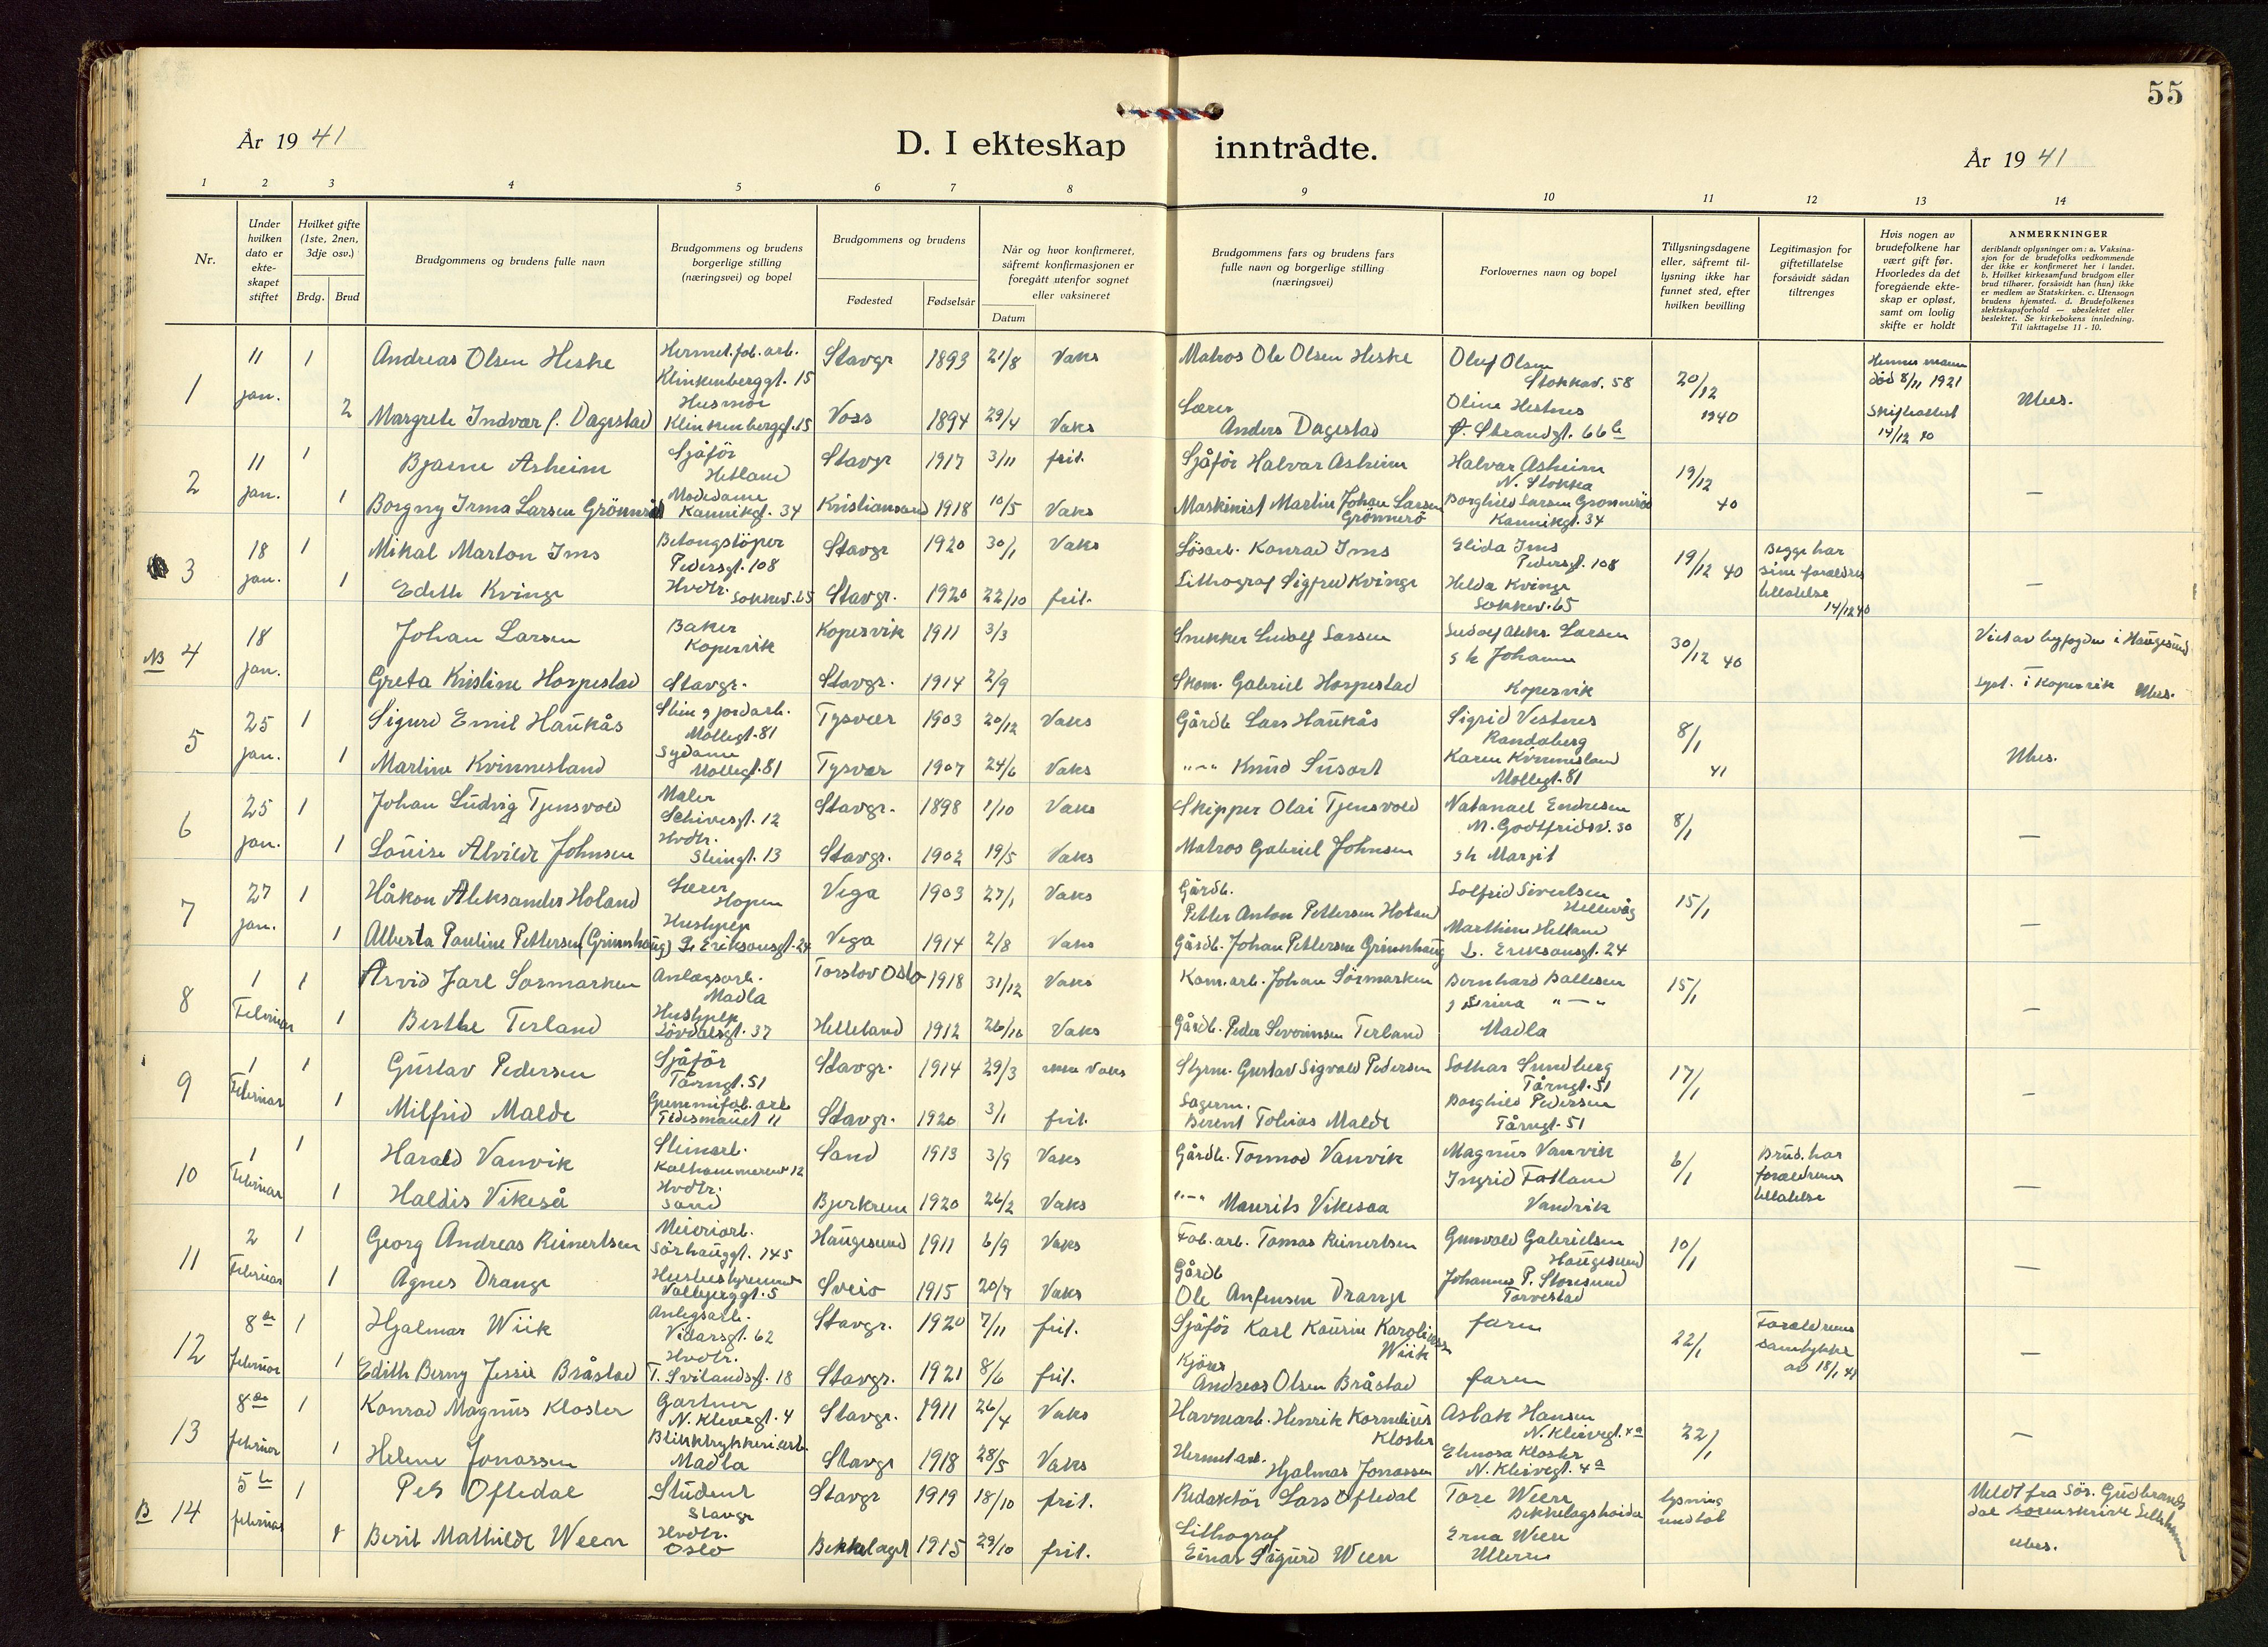 55
År 1941
D. I ekteskap inntrådte.
År 1941
1 2 3 4 5 6 7 8 9 10 11 12 13 14
Nr.
Under hvilken dato er ekte-skapet stiftet
Hvilket gifte (1ste, 2nen, 3dje osv.)
Brdg. Brud
Brudgommens og brudens fulle navn
Brudgommens og brudens borgerlige stilling (næringsvei) og bopel
Brudgommens og brudens
Fødested Fødselsår
Når og hvor konfirmeret, såfremt konfirmasjonen er foregått utenfor sognet eller vaksineret
Datum
Brudgommens fars og brudens fars fulle navn og borgerlige stilling (næringsvei)
Forlovernes navn og bopel
Tillysningsdagene eller, såfremt til-lysning ikke har funnet sted, efter hvilken bevilling
Legitimasjon for giftetillatelse forsåvidt sådan tiltrenges
Hvis nogen av brudefolkene har vært gift før. Hvorledes da det foregående ekte-skap er opløst, samt om lovlig skifte er holdt
ANMERKNINGER
deriblandt oplysninger om: a. Vaksina-sjon for de brudefolks vedkommende der ikke er konfirmeret her i landet. b. Hvilket kirkesamfund brudgom eller brud tilhører, forsåvidt han (hun) ikke er medlem av Statskirken. c. Utensogn brudens hjemsted. d. Brudefolkenes slektskapsforhold — ubeslektet eller beslektet. Se kirkebokens innledning. Til iakttagelse 11 - 10.
1 11 jan. 1 Andreas Olsen Heske Hermet.fab.arb. Klinkenberggt. 15 Stavgr 1893 21/8 Vaks Matros Ole Olsen Heske Oluf Olsen Stokkav. 58 20/12 1940 Hennes mann død 8/11 1921
2 Margrete Indvær f. Dagestad Husmor Klinkenberggt. 15 Voss 1894 29/4 Vaks Lærer Anders Dagestad Oline Hestnes Ø. Strandgt. 66b Skifteattest 14/12 40 Ubes.
2 11 jan. 1 Bjarne Asheim Sjåför Hetland Stavgr 1917 3/11 frit. Sjåför Halvar Asheim Halvar Asheim N. Stokka 19/12 40
1 Borgny Irma Larsen Grönnerö Motedame Kannikgt. 34 Kristiansand 1918 10/5 Vaks Maskinist Martin Johan Larsen Grönnerö Borghild Larsen Grønnerö Kannikgt. 34 —
3 18 jan. 1 Mikal Marton Ims Betongstöper Pedersgt. 108 Stavgr 1920 30/1 Vaks Lösarb. Konrad Ims Elida Ims Pedersgt. 108 19/12 40 Begge har sine foreldres tillatelse 14/12 40
1 Edith Kvinge Hvdtr. Stavgr. 1920 22/10 frit. Lithograf Sigfred Kvinge Helda Kvinge —
NB 4 18 jan. Johan Larsen Baker Kopervik Kopervik 1911 3/3 Snekker Ludolf Larsen Ludolf Aleks. Larsen Johanne Kopervik 30/12 40 Viet av byfogden i Haugesund
Greta Kristine Horpestad Stavgr. Stavgr. 1914 2/9 Skom. Gabriel Horpestad lyst. i Kopervik Ubes.
5 25 jan. 1 Sigurd Emil Haukås Sten & jordarb. Møllegt. 81 Tysvær 1903 20/12 Vaks Gårdb. Lars Haukås Sigrid Vestnes Randaberg 8/1 41
1 Martine Kvinnesland Sydame Møllegt. 81 Tysvær 1907 24/6 Vaks "—" Knud Susort Karen Kvinnesland Møllegt. 81 Ubes.
6 25 jan. 1 Johan Ludvig Tjensvold Maler Schivesgt. 12 Stavgr. 1898 1/10 Vaks Skipper Olai Tjensvold Natanael Endresen M. Godtfridsv. 30 8/1
1 Louise Alvilde Johnsen Hvdtr. Steingt. 13 Stavgr. 1902 19/5 Vaks Matros Gabriel Johnsen Margit —
7 27 jan. 1 Håkon Aleksander Holand Lærer Hopen Vega 1903 27/1 Vaks Gårdb. Petter Anton Pettersen Holand Solfrid Sivertsen Hellevåg 15/1
1 Alberta Pauline Pettersen (Grimnhaug) Hushjelp L. Eriksonsgt. 24 Vega 1914 2/8 Vaks Gårdb. Johan Pettersen Grimnhaug Marthine Helland L. Eriksonsgt. 24 —
8 1 Februar 1 Arvid Jarl Sørmarken Anlegsarb. Madla Torslov Oslo 1918 31/12 Vaks Kom.arb. Johan Sörmarken Bernhard Dallesen "—" 15/1
1 Berthe Terland Hushjelp Lövdalsgt. 37 Helleland 1912 26/10 Vaks Gårdb. Peder Severinsen Terland Madla —
9 1 Februar 1 Gustav Pedersen Sjåför Tårngt. 51 Stavgr. 1914 29/3 ikke Vaks Styrm. Gustav Sigvald Pedersen Lothar Sundberg Tårngt. 51 17/1
1 Milfrid Malde Gummifab.arb. Tidesmauet 11 Stavgr. 1920 3/1 frit. Lagerm. Berent Tobias Malde Borghild Pedersen Tårngt. 51 —
10 1 Februar 1 Harald Vanvik Steinarb. Kalhammeren 12 Sand 1913 3/9 Vaks Gårdb. Tormod Vanvik Magnus Vanvik 6/1 Brud. har foreldrenes tillatelse
1 Haldis Vikeså Hvdtr. Sand Bjerkrem 1920 26/2 Vaks "—" Maurits Vikesaa Ingrid Fatland Vandvik —
11 2 Februar 1 Georg Andreas Reinertsen Meieriarb. Sörhauggt. 145 Haugesund 1911 6/9 Vaks Fab.arb. Tomas Reinertsen Gunvald Gabrielsen Haugesund 10/1
1 Agnes Drange Husbestyrerinne Valbjerggt. 5 Sveio 1915 20/7 Vaks Gårdb Ole Anfinsen Drange Johannes P. Storesund Torvestad —
12 8de februar 1 Hjalmar Wiik Anlegsarb. Vidarsgt. 62 Stavgr. 1920 7/11 frit. Sjåför Karl Kaurin Wiik faren 22/1 Foreldrenes samtykke av 18/1 41
1 Edith Berny Jessie Bråstad Hvdtr. T. Svilandsgt. 18 Stavgr. 1921 8/6 frit. Kjörer Andreas Olsen Bråstad faren —
13 8de februar 1 Konrad Magnus Kloster Gartner N. Kleivegt. 4 Stavgr. 1911 26/4 Vaks Havnearb. Henrik Kornelius Kloster Aslak Hansen N. Kleivegt. 4a 22/1
1 Helene Jonassen Blikktrykkeriarb. Madla Stavgr 1918 28/5 Vaks Hermetarb. Hjalmar Jonassen Elenora Kloster N. Kleivegt. 4a —
B 14 5te februar 1 Per Oftedal Student Stavgr Stavgr 1919 18/10 frit. Redaktör Lars Oftedal Tore Ween Bekkelagshöida lysning undlat Meldt fra Sör. Gudbrandsdal sorenskrive Lillehammer
1 Berit Mathilde Ween Hvdtr. Oslo Bekkelaget 1915 29/10 frit. Lithograf Einar Sigurd Ween Erna Ween Ullern ubes.